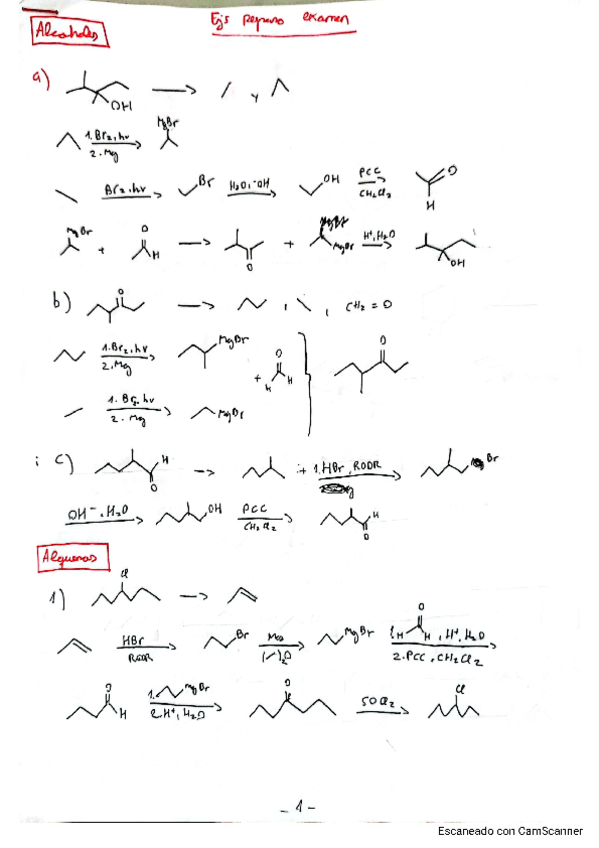 Ejs repaso examen
Alcoholes
a)
OH
y
1. Br2, hv
2. Mg
MgBr
Br2, hv
Br
H2O, -OH
OH
PCC
CH2Cl2
O
H
MgBr
+
O
H
O
+
MgBr
H+, H2O
OH
b)
O
,
, CH2 = O
1. Br2, hv
2. Mg
MgBr
+
O
H H
O
1. Br2, hv
2. Mg
MgBr
i c)
H
O
+ 1. HBr, ROOR
Br
OH-, H2O
OH
PCC
CH2Cl2
H
O
Alquenos
1)
Cl
HBr
ROOR
Br
MgBr
1. H H, H+, H2O
O
2. PCC, CH2Cl2
O
H
1. MgBr
2. H+, H2O
O
SOCl2
Cl
- 1 -
Escaneado con CamScanner